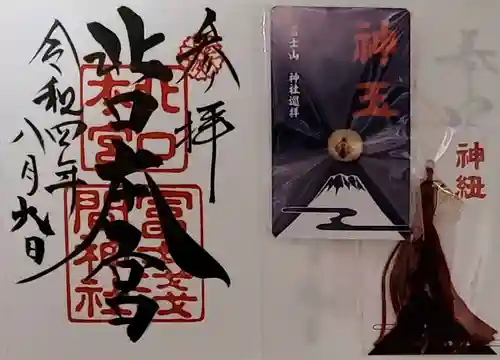 参拝
北口本宮
令和四年
八月九日
北口
本宮
冨士淺
間神社
神玉
富士山 神社巡拝
神紐